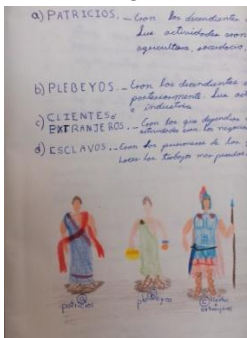 a) PATRICIOS. - Son los decendientes
Sus actividades eran
agricultura, sacerdocio,
b) PLEBEYOS. - Son los decendientes
posteriormente. Sus act
e industria
c) CLIENTES o
EXTRANJEROS. - Son los que dependían
actividades son la negocia
d) ESCLAVOS. - Son los prisioneros de las
hacer los trabajos mas pesados
a
patricios
b
plebeyos
c clientes
extranjeros